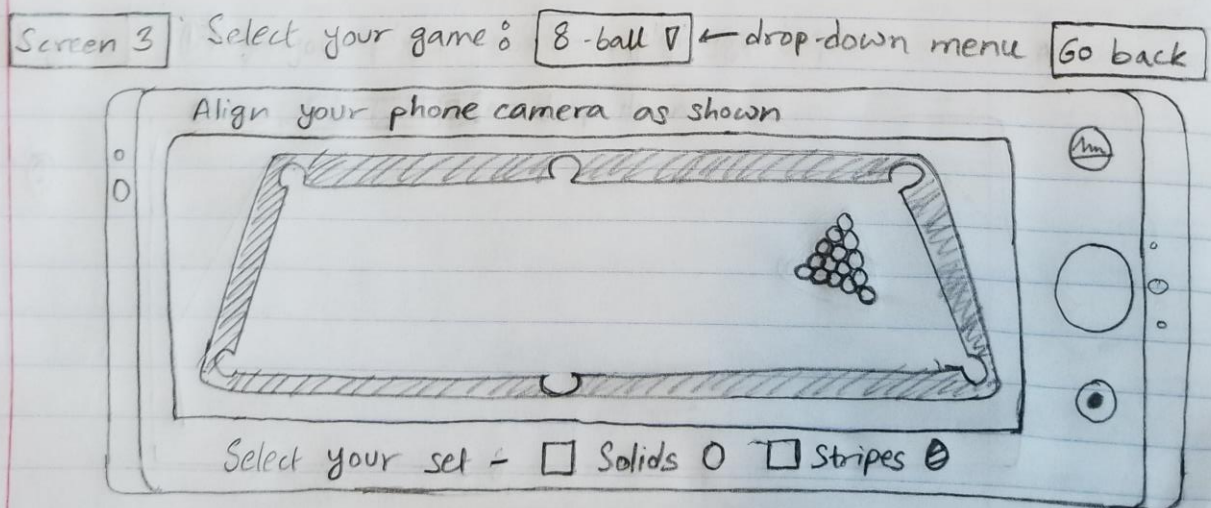 Screen 3 Select your game: 8-ball ▽ ← drop-down menu Go back
Align your phone camera as shown
Select your set - □ Solids ○ □ Stripes